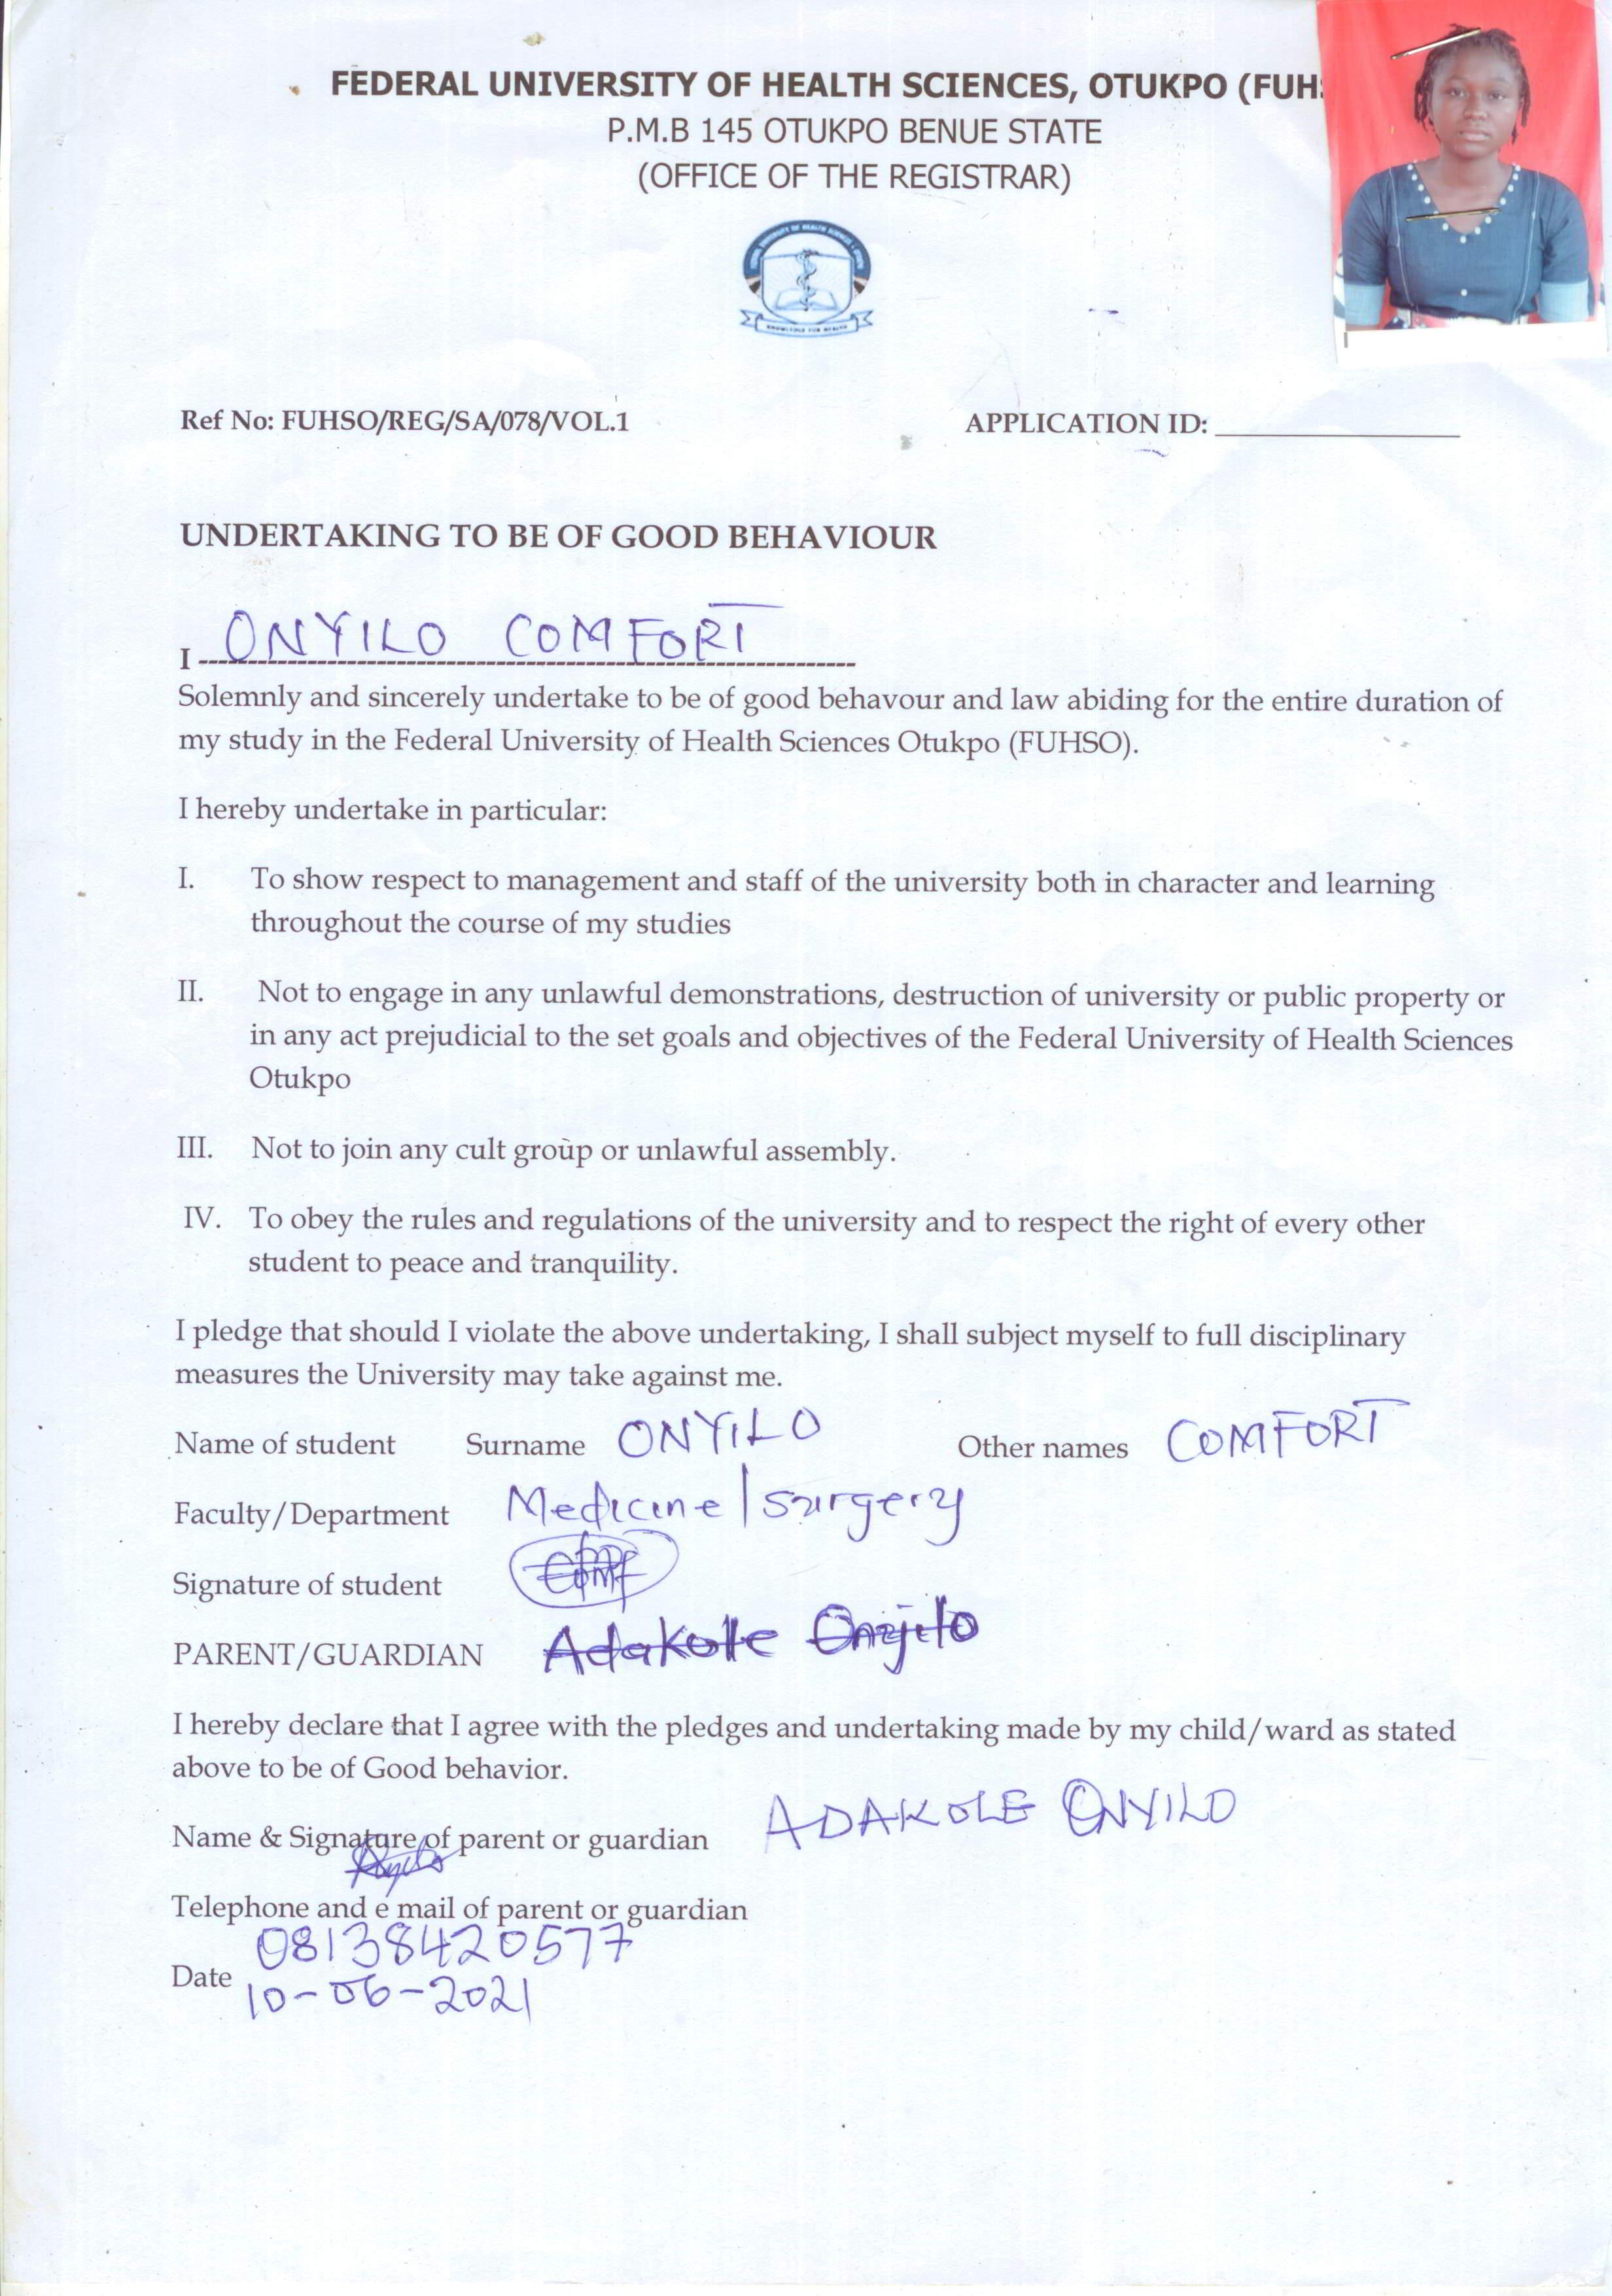 FEDERAL UNIVERSITY OF HEALTH SCIENCES, OTUKPO (FUH
P.M.B 145 OTUKPO BENUE STATE
(OFFICE OF THE REGISTRAR)
KNOWLEDGE FOR HEALTH
Ref No: FUHSO/REG/SA/078/VOL.1 APPLICATION ID:
UNDERTAKING TO BE OF GOOD BEHAVIOUR
I ONYILO COMFORT
Solemnly and sincerely undertake to be of good behavour and law abiding for the entire duration of
my study in the Federal University of Health Sciences Otukpo (FUHSO).
I hereby undertake in particular:
I. To show respect to management and staff of the university both in character and learning
throughout the course of my studies
II. Not to engage in any unlawful demonstrations, destruction of university or public property or
in any act prejudicial to the set goals and objectives of the Federal University of Health Sciences
Otukpo
III. Not to join any cult group or unlawful assembly.
IV. To obey the rules and regulations of the university and to respect the right of every other
student to peace and tranquility.
I pledge that should I violate the above undertaking, I shall subject myself to full disciplinary
measures the University may take against me.
Name of student Surname ONYILO Other names COMFORT
Faculty/Department Medicine/surgery
Signature of student
PARENT/GUARDIAN Adakole Onyilo
I hereby declare that I agree with the pledges and undertaking made by my child/ward as stated
above to be of Good behavior.
Name & Signature of parent or guardian ADAKOLE ONYILO
Telephone and e mail of parent or guardian
08138420577
Date 10-06-2021